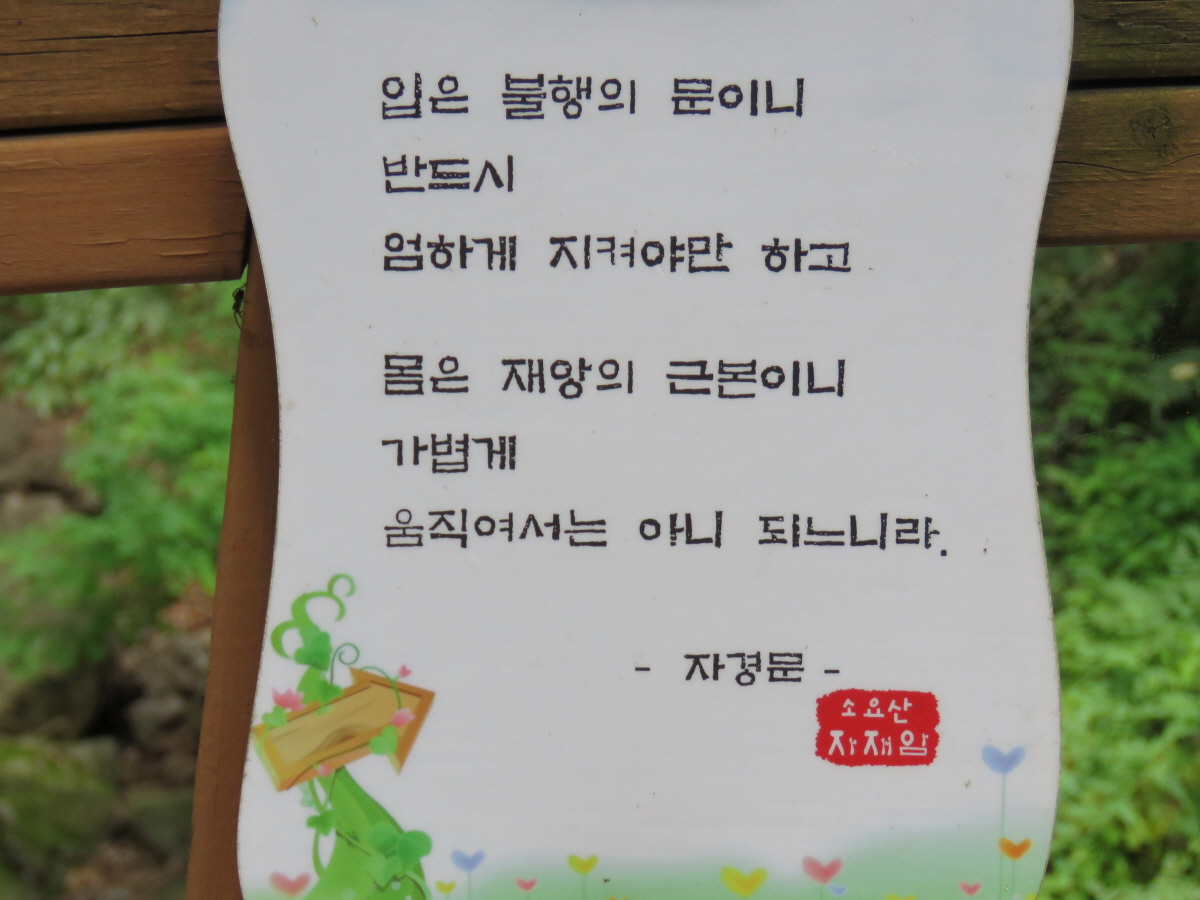 입은 불행의 문이니
반드시
엄하게 지켜야만 하고
몸은 재앙의 근본이니
가볍게
움직여서는 아니 되느니라.
- 자경문 -
소요산
자재암